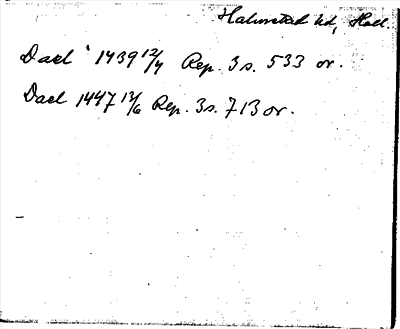 Halmstad hd, Hall.
Dael 1439 12/4 Rep. 3 s. 533 or.
Dael 1447 12/6 Rep. 3 s. 713 or.